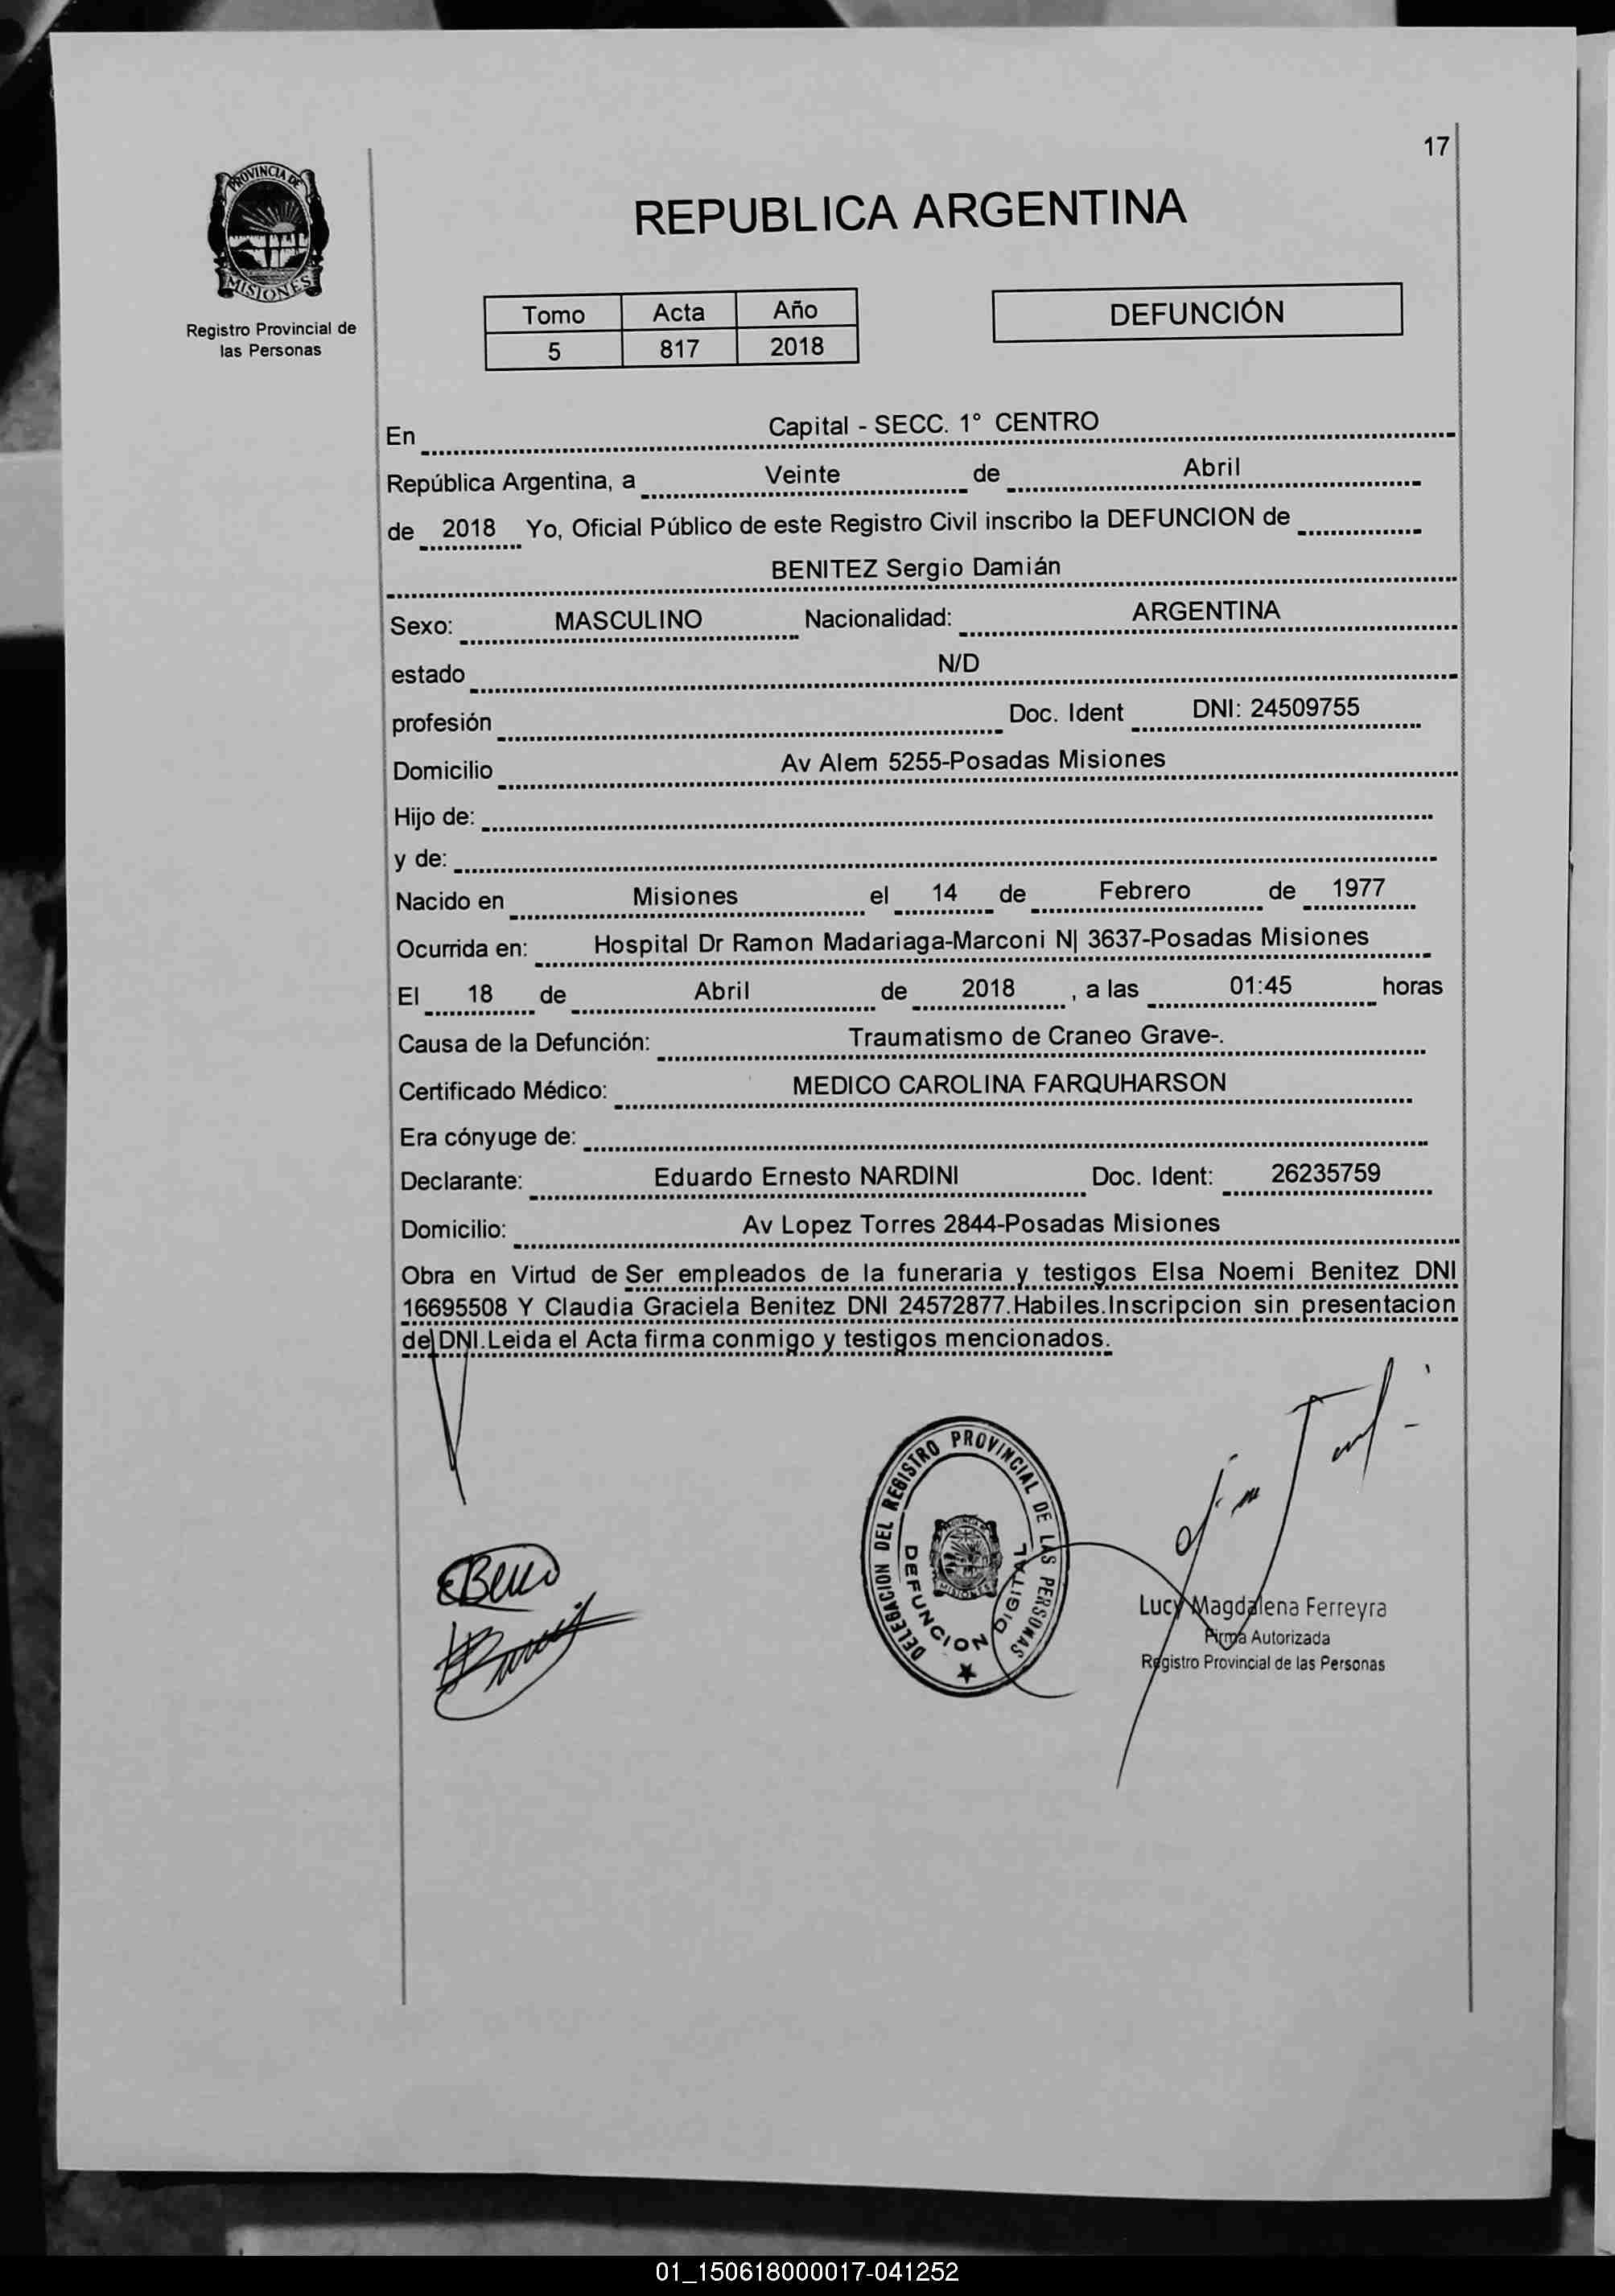 17
PROVINCIA DE
MISIONES
Registro Provincial de
las Personas
REPUBLICA ARGENTINA
Tomo Acta Año
5 817 2018
DEFUNCIÓN
En Capital - SECC. 1° CENTRO
República Argentina, a Veinte de Abril
de 2018 Yo, Oficial Público de este Registro Civil inscribo la DEFUNCION de
BENITEZ Sergio Damián
Sexo: MASCULINO Nacionalidad: ARGENTINA
estado N/D
profesión Doc. Ident DNI: 24509755
Domicilio Av Alem 5255-Posadas Misiones
Hijo de:
y de:
Nacido en Misiones el 14 de Febrero de 1977
Ocurrida en: Hospital Dr Ramon Madariaga-Marconi N| 3637-Posadas Misiones
El 18 de Abril de 2018 , a las 01:45 horas
Causa de la Defunción: Traumatismo de Craneo Grave-.
Certificado Médico: MEDICO CAROLINA FARQUHARSON
Era cónyuge de:
Declarante: Eduardo Ernesto NARDINI Doc. Ident: 26235759
Domicilio: Av Lopez Torres 2844-Posadas Misiones
Obra en Virtud de Ser empleados de la funeraria y testigos Elsa Noemi Benitez DNI
16695508 Y Claudia Graciela Benitez DNI 24572877.Habiles.Inscripcion sin presentacion
del DNI.Leida el Acta firma conmigo y testigos mencionados.
DELEGACION DEL REGISTRO PROVINCIAL DE LAS PERSONAS
DEFUNCION DIGITAL
MISIONES
Lucy Magdalena Ferreyra
Firma Autorizada
Registro Provincial de las Personas
01_150618000017-041252